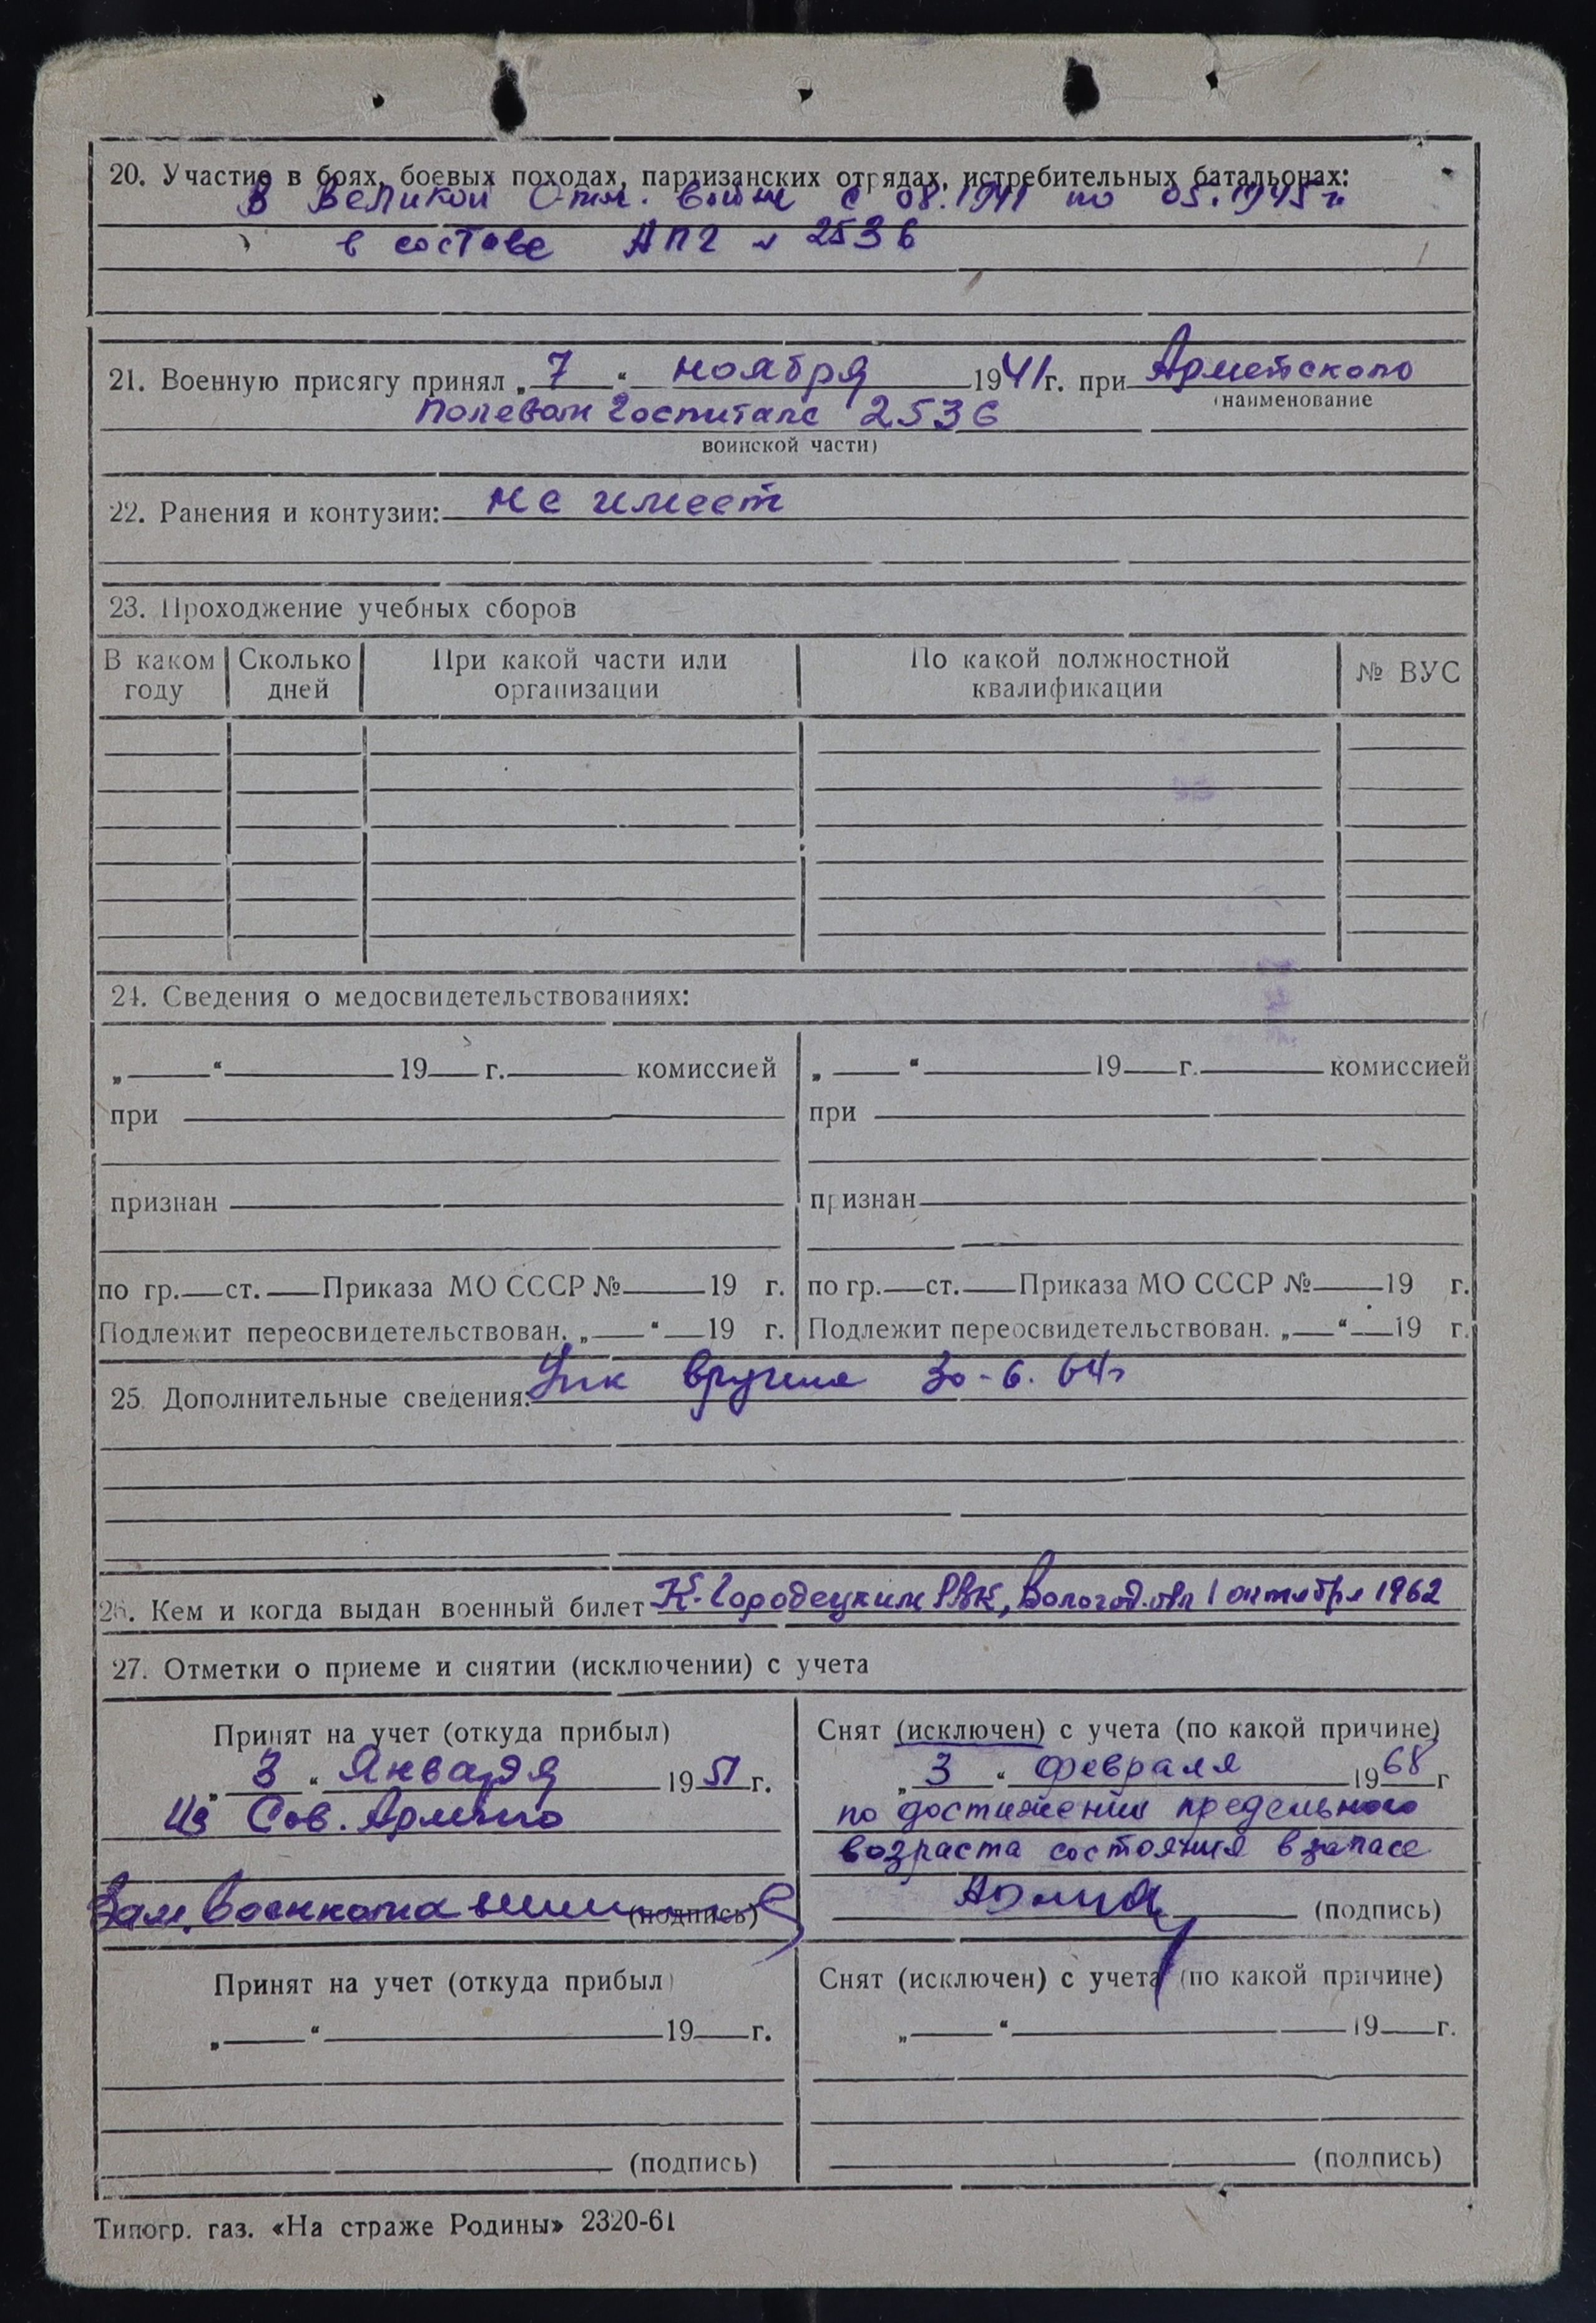 20. Участие в боях, боевых походах, партизанских отрядах, истребительных батальонах:
В Великой Отеч. войне с 08.1941 по 05.1945 г
в составе АПГ № 2536
21. Военную присягу принял „ 7 “ ноября 1941 г. при Армейском
(наименование
Полевом Госпитале 2536
воинской части)
22. Ранения и контузии: Не имеет
23. Прохождение учебных сборов
В каком году Сколько дней При какой части или организации По какой должностной квалификации № ВУС
24. Сведения о медосвидетельствованиях:
„ “ 19 г. комиссией „ “ 19 г. комиссией
при при
признан признан
по гр. ст. Приказа МО СССР № 19 г. по гр. ст. Приказа МО СССР № 19 г.
Подлежит переосвидетельствован. „ “ 19 г. Подлежит переосвидетельствован. „ “ 19 г.
25. Дополнительные сведения: 30-6.64г
26. Кем и когда выдан военный билет К-Городецким РВК, Вологод. обл 1 октября 1962
27. Отметки о приеме и снятии (исключении) с учета
Принят на учет (откуда прибыл)
„ 3 “ Января 1951 г.
Из Сов. Армии
Зам. Военкома
(подпись)
Снят (исключен) с учета (по какой причине)
„ 3 “ февраля 1968 г
по достижении предельного
возраста состояния в запасе
(подпись)
Принят на учет (откуда прибыл)
„ “ 19 г.
(подпись)
Снят (исключен) с учета (по какой причине)
„ “ 19 г.
(подпись)
Типогр. газ. «На страже Родины» 2320-61